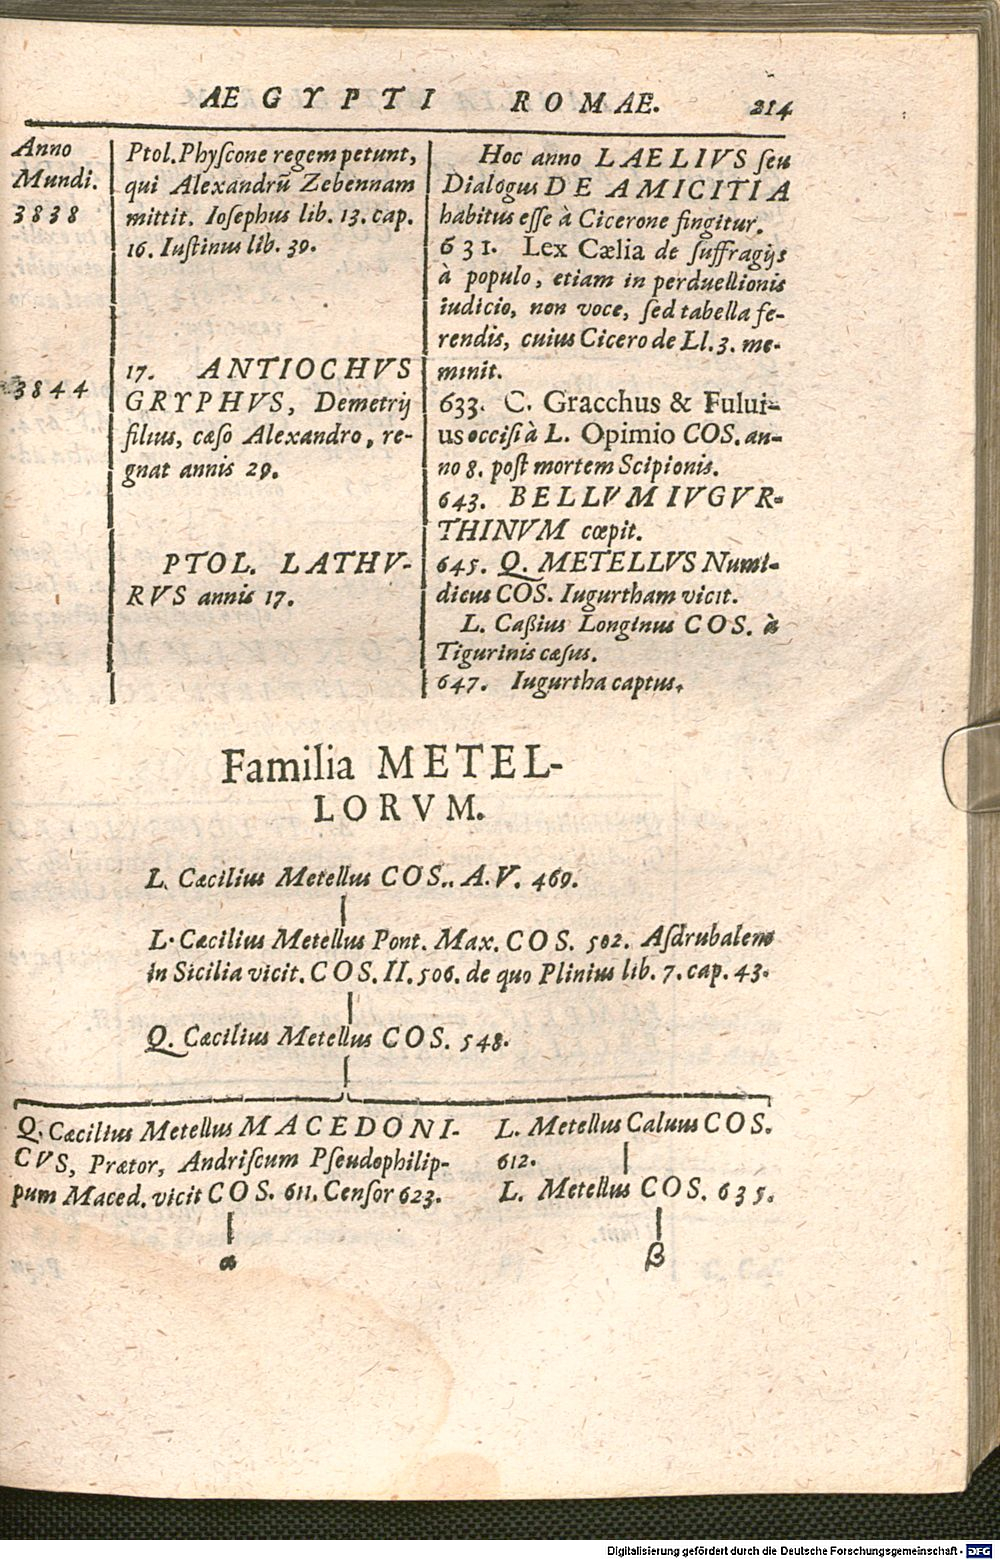 AEGYPTI ROMAE. 214
Anno
Mundi.
3838
3844
Ptol. Phyſcone regem petunt,
qui Alexandrũ Zebennam
mittit. Ioſephus lib. 13. cap.
16. Iuſtinus lib. 39.
17. ANTIOCHVS
GRYPHVS, Demetrij
filius, cæſo Alexandro, re-
gnat annis 29.
PTOL. LATHV-
RVS annis 17.
Hoc anno LAELIVS ſeu
Dialogus DE AMICITIA
habitus eſſe à Cicerone fingitur.
631. Lex Cælia de ſuffragijs
à populo, etiam in perduellionis
iudicio, non voce, ſed tabella fe-
rendis, cuius Cicero de Ll. 3. me-
minit.
633. C. Gracchus & Fului-
us occiſi à L. Opimio COS. an-
no 8. poſt mortem Scipionis.
643. BELLVM IVGVR-
THINVM cœpit.
645. Q. METELLVS Numi-
dicus COS. Iugurtham vicit.
L. Caßius Longinus COS. à
Tigurinis cæſus.
647. Iugurtha captus.
Familia METEL-
LORVM.
L. Cæcilius Metellus COS.. A.V. 469.
L. Cæcilius Metellus Pont. Max. COS. 502. Aſdrubalem
in Sicilia vicit. COS. II. 506. de quo Plinius lib. 7. cap. 43.
Q. Cæcilius Metellus COS. 548.
Q. Cæcilius Metellus MACEDONI-
CVS, Prætor, Andriſcum Pſeudophilip-
pum Maced. vicit COS. 611. Cenſor 623.
α
L. Metellus Caluus COS.
612.
L. Metellus COS. 635.
β
Digitalisierung gefördert durch die Deutsche Forschungsgemeinschaft - DFG